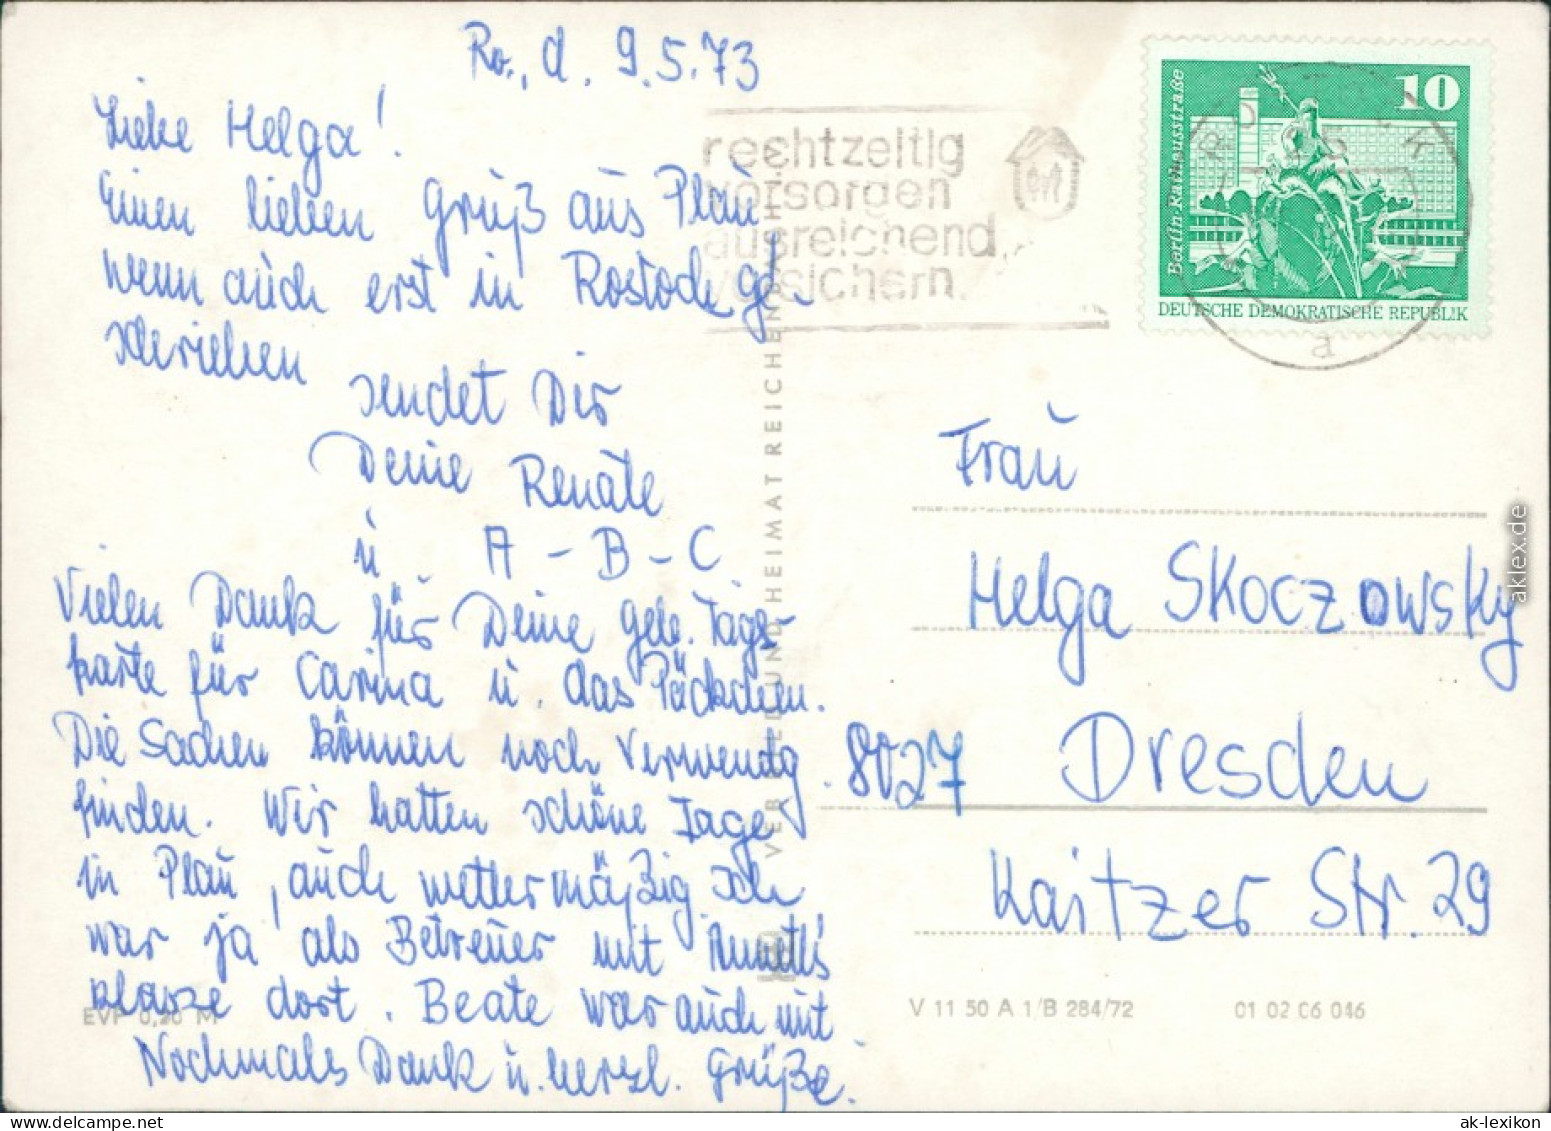 Ro., d. 9.5.73
Liebe Helga!
Einen lieben Gruß aus Plau
wenn auch erst in Rostock ge-
schrieben
sendet Dir
Deine Renate
u A - B - C
Vielen Dank für Deine gele. Tages-
karte für Carina u. das Päckchen.
Die Sachen können noch Verwendg.
finden. Wir hatten schöne Tage
in Plau, auch wettermäßig. Ich
war ja als Betreuer mit Annett's
Klasse dort. Beate war auch mit
Nochmals Dank u. herzl. Grüße.
EVP 0,20 M
VERBREITUNG UND HEIMATREICHENBACH
rechtzeitig
vorsorgen
ausreichend
versichern.
10
Berlin-Rathausstraße
DEUTSCHE DEMOKRATISCHE REPUBLIK
ROSTOCK
a
Frau
Helga Skoczowsky
8027 Dresden
Kaitzer Str. 29
V 11 50 A 1/B 284/72 01 02 06 046
aklex.de
ak-lexikon